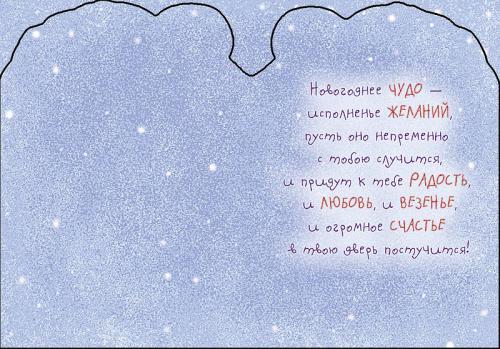 Новогоднее ЧУДО —
исполненье ЖЕЛАНИЙ,
пусть оно непременно
с тобою случится,
и придут к тебе РАДОСТЬ,
и ЛЮБОВЬ, и ВЕЗЕНЬЕ,
и огромное СЧАСТЬЕ
в твою дверь постучится!